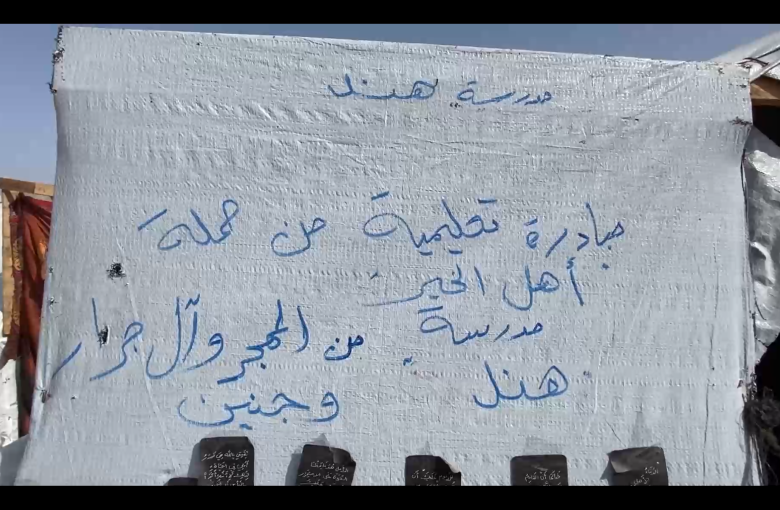 مدرسة هند
مبادرة تعليمية من حملة
أهل الخير
مدرسة من المجر وآل جرار
هند وجنين